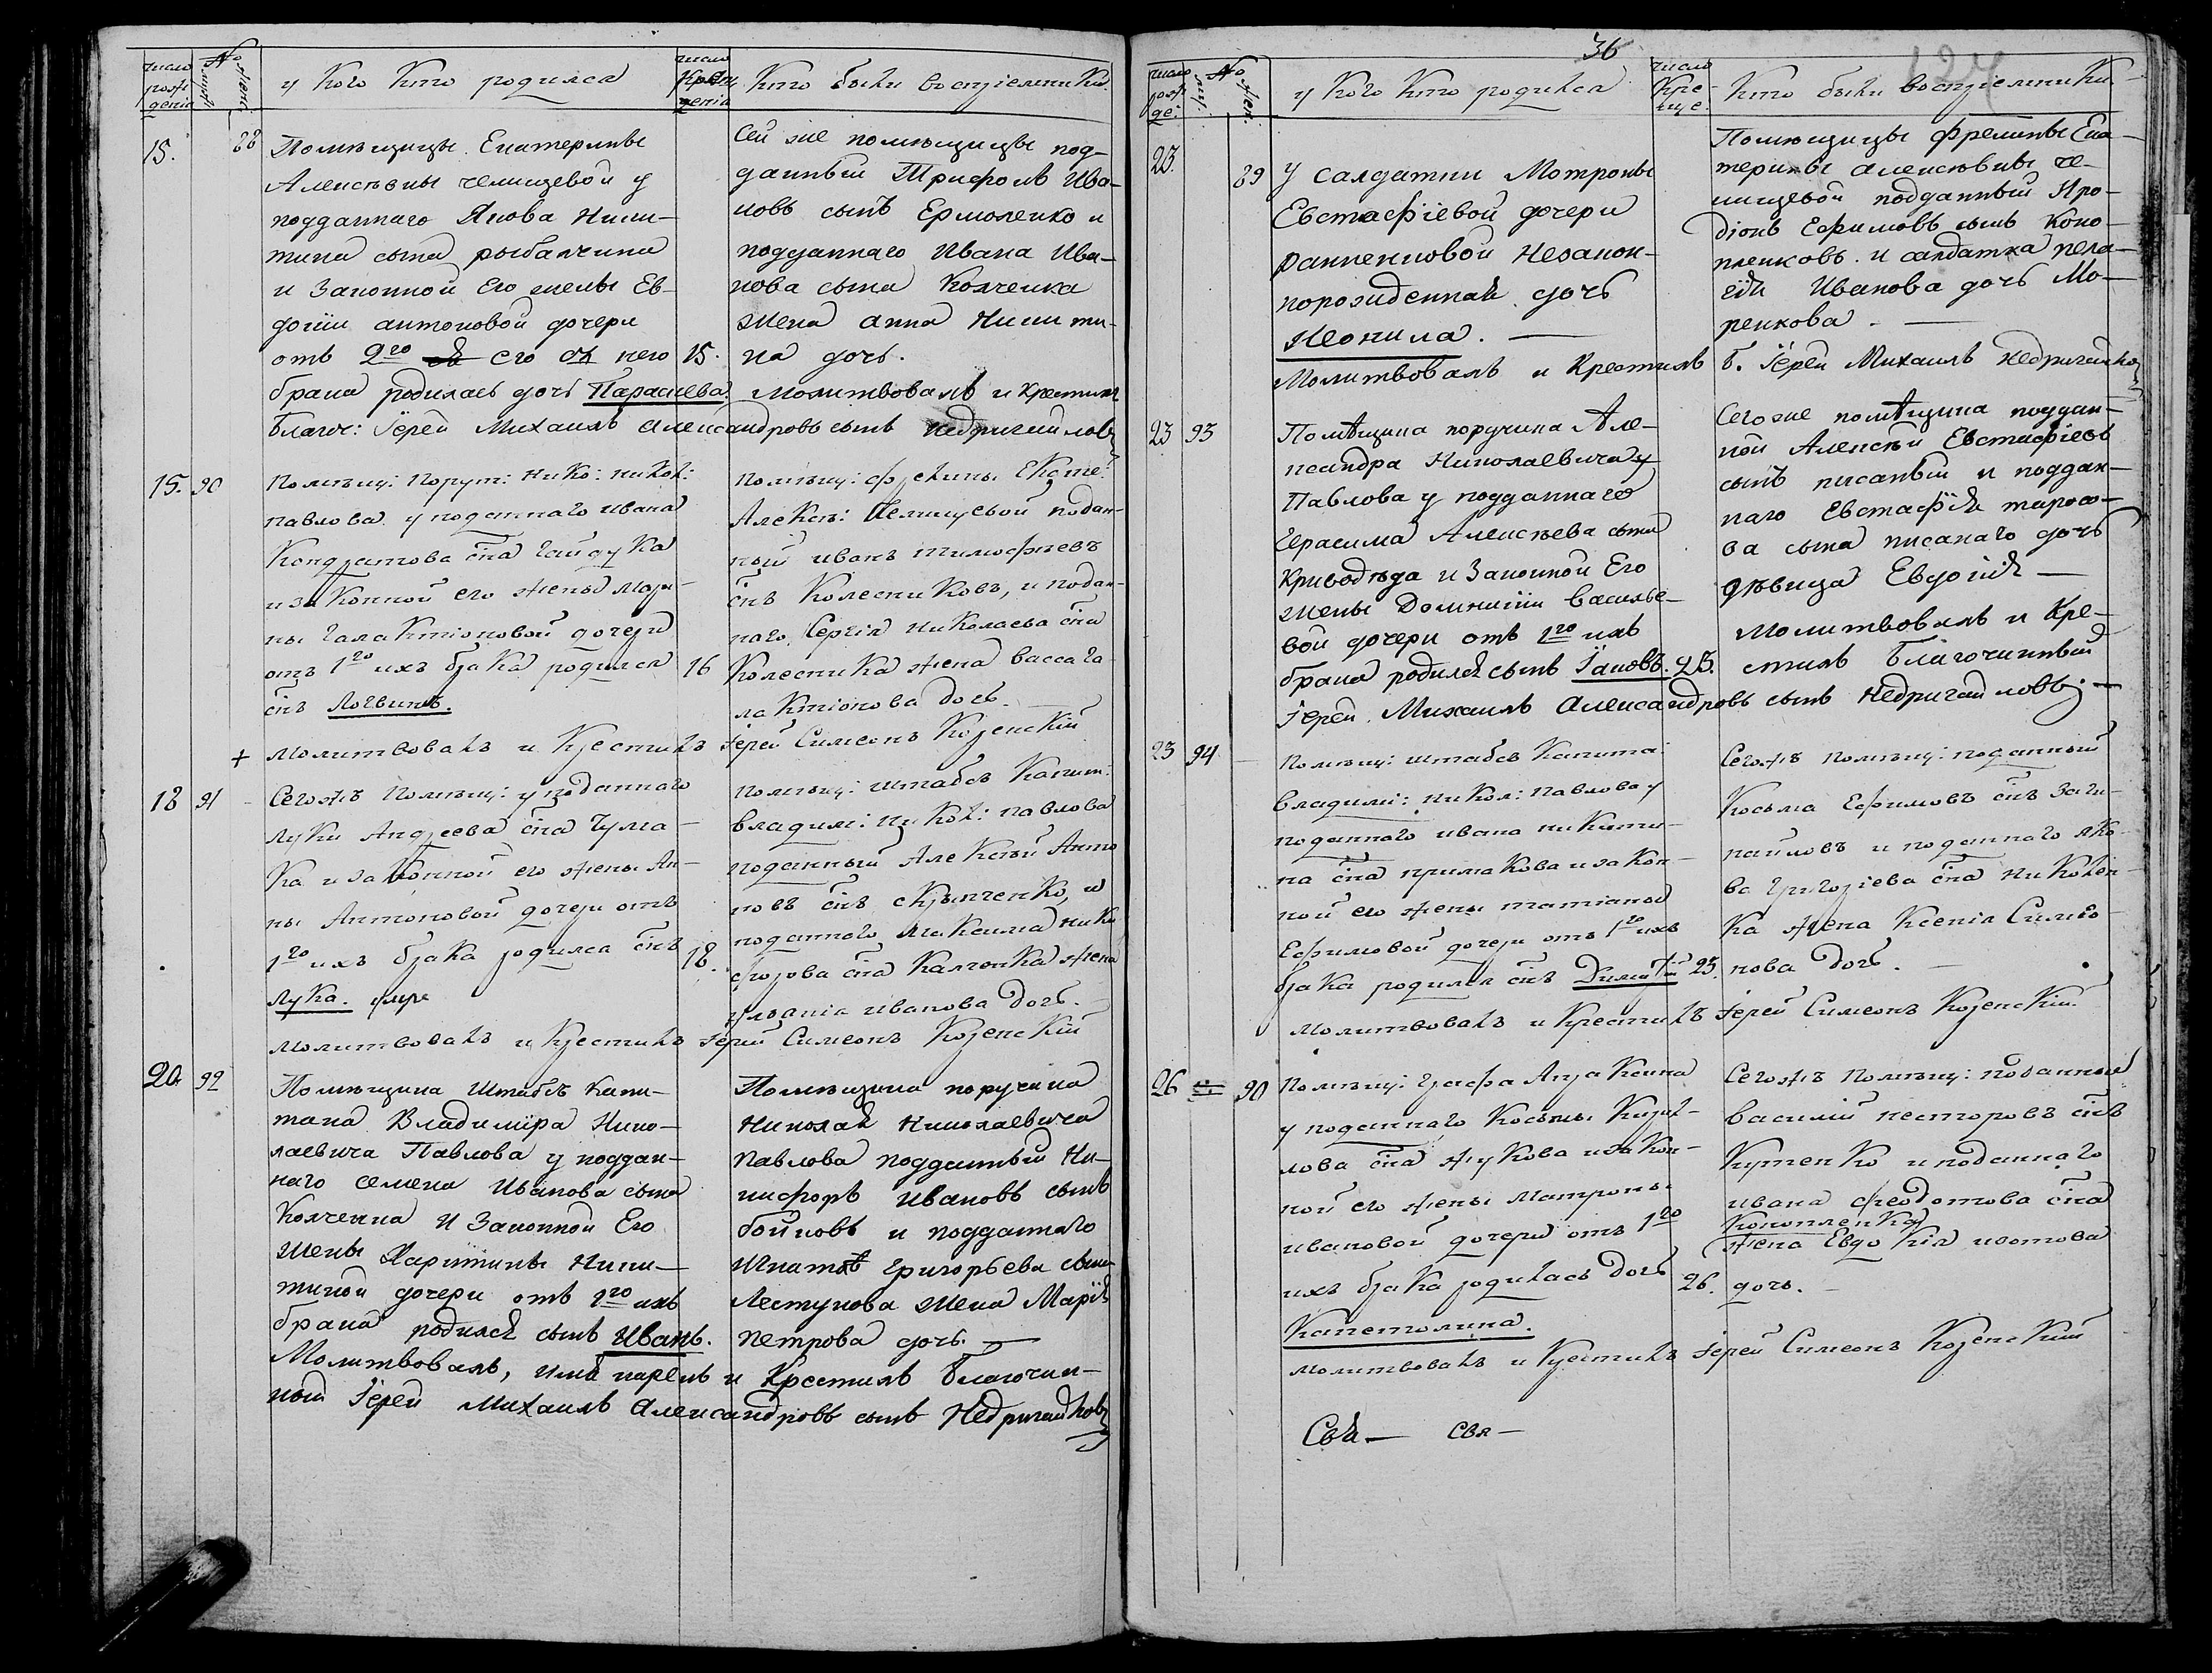 число рожденія
№ муж:
жен:
у Кого Кто родился
число Крещенія
Кто были воспріемники
15. 88
Помѣщицы Екатерины
Алексѣевны челищевой у
подданнаго Якова Ники-
тина сына рыбалчина
и Законной Его жены Ев-
докіи антоновой дочери
отъ 2го его брака родилась дочь Параскева
15.
Сей же помѣщицы под-
данный Трифонъ Ива-
новъ сынъ Ермоленко и
подданнаго Ивана Ива-
нова сына Колченка
жена анна Никити-
на дочь.
Молитвовалъ и крестилъ
Благоч: Іерей Михаилъ Александровъ сынъ Недригайловъ
15. 90
Помѣщ: Поруч: Нико: никол:
павлова у поданнаго ивана
Кондратова сна Гайдука
и законной его жены Мари-
ны Галактіоновой дочери
отъ 1го ихъ брака родился
снъ Логвинъ.
16
помѣщ: фрелины Екате:
Алексѣ: Челищевой подан-
ный иванъ тимофѣевъ
снъ Колесниковъ, и подан-
наго Сергія николаева сна
Колесника жена васса га-
лактіонова дочь.
+ молитвовалъ и Крестилъ Іерей Симеонъ Козенскій
18 91
Сегожъ Помѣщ: у поданнаго
Луки Андреева сна Чума-
ка и законной его жены Ан-
ны Антоновой дочери отъ
1го ихъ брака родился снъ
Лука. умре
18.
помѣщ: штабсъ Капит:
владим: никол: павлова
поданный Алексѣй Анто
новъ снъ скрынченко, и
поданнаго Максима ники
форова сна Калченка жена
уліанія иванова дочь.
молитвовалъ и Крестилъ Іерей Симеонъ Козенскій
20. 92
Помѣщика Штабсъ Капи-
тана Владиміра Нико-
лаевича Павлова у поддан-
наго семена Иванова сына
Колченка И Законной Его
жены Харитины Ники-
тиной дочери отъ 1го ихъ
брака родился сынъ Иванъ.
Помѣщика поручика
Николая Николаевича
Павлова подданный Ни-
кифоръ Ивановъ сынъ
бойковъ и подданнаго
Игната григорьева сына
Лестукова жена Марія
Петрова дочь.
Молитвовалъ, имя нарекъ и Крестилъ Благочин-
ный Іерей Михаилъ Александровъ сынъ Недригайловъ
36
127
число рожде:
№ муж:
жен:
у Кого Кто родился
число Креще:
Кто были воспріемники
23. 89
У салдатки Мотроны
Евстафіевой дочери
незакон-
норожденная дочь
Неонила.
Помѣщицы фрелины Ека-
терины алексѣевны че-
лищевой подданный Иро-
діонъ Ефимовъ сынъ Коно-
пленковъ и салдатка пела-
гѣя Иванова дочь Мо-
ренкова
Молитвовалъ и Крестилъ Б. Іерей Михаилъ Недригайловъ
23 93
Помѣщика поручика Але-
ксандра Николаевича
Павлова у подданнаго
Герасима Алексѣева сына
Криводѣда и Законной Его
жены Домникіи василье-
вой дочери отъ 1го ихъ
брака родился сынъ Іаковъ. 25.
Сего же помѣщика поддан-
ной Алексѣй Евстафіевъ
сынъ писаный и поддан-
наго Евстафія тарасо-
ва сына писанаго дочь
дѣвица Евдокія
Молитвовалъ и Кре-
стилъ Благочинный
Іерей Михаилъ Александровъ сынъ Недригайловъ.
23 94
Помѣщ: штабсъ Капита:
владимі: никол: павлова у
поданнаго ивана никити-
на сна примакова и закон-
ной его жены татіаны
Ефимовой дочери отъ 1го ихъ
брака родился снъ Димитрій 23.
Сегожъ помѣщ: поданный
Косьма Ефимовъ снъ Заги-
найловъ и поданнаго яко-
ва григоріева сна николен-
ка жена Ксенія Симео-
нова дочь.
молитвовалъ и Крестилъ Іерей Симеонъ Козенскій
26 90
Помѣщ: Графа Апраксина
у поданнаго Космы Кирил-
лова сна жукова и закон-
ной его жены Матроны
ивановой дочери отъ 1го
ихъ брака родилась дочь 26.
Капетолина.
Сегожъ Помѣщ: поданный
василій несторовъ снъ
Куценко и поданнаго
ивана феодотова сна
Конопленка
жена Евдокія изотова
дочь.
молитвовалъ и Крестилъ Іерей Симеонъ Козенскій
Свя — Свя —